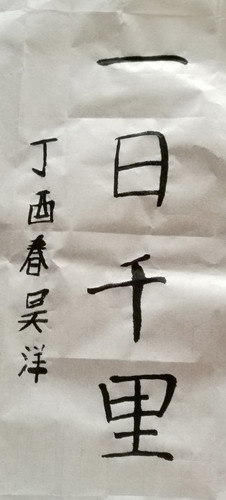 一日千里
丁酉春吴洋